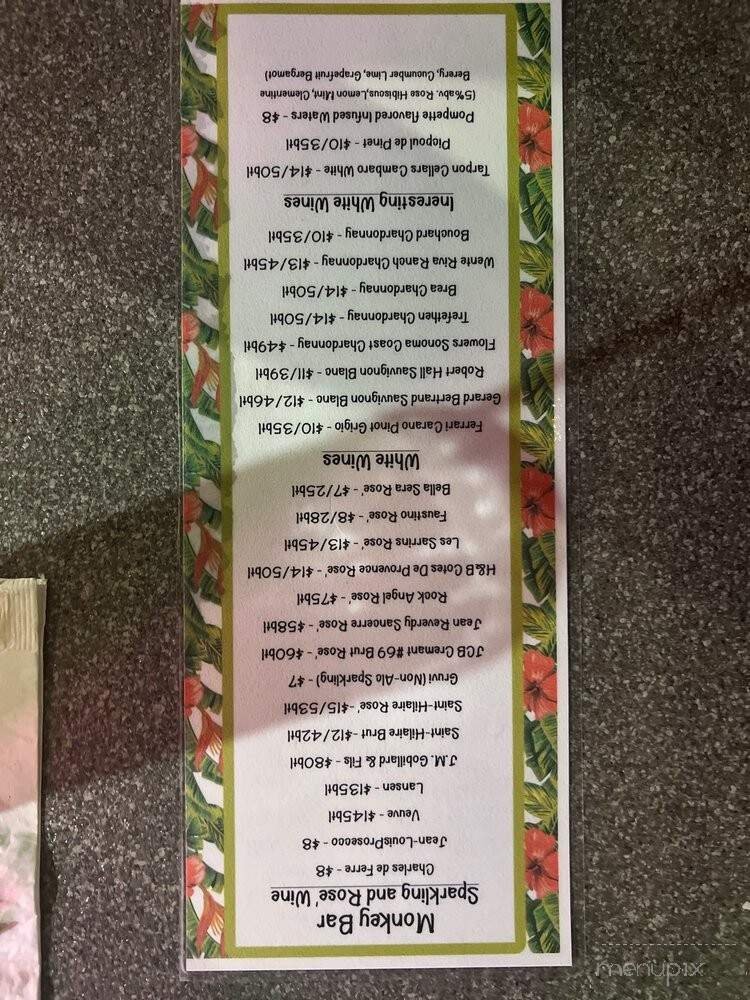 Monkey Bar
Sparkling and Rose' Wine
Charles de Ferre - $8
Jean-LouisProsecco - $8
Veuve - $145btl
Lansen - $135btl
J.M. Gobillard & Fils - $80btl
Saint-Hilaire Brut -$12/42btl
Saint-Hilaire Rose' -$15/53btl
Gruvi (Non-Alo Sparkling) - $7
JCB Cremant #69 Brut Rose' - $60btl
Jean Reverdy Sancerre Rose' - $58btl
Rock Angel Rose' - $75btl
H&B Cotes De Provence Rose' - $14/50btl
Les Sarrins Rose' - $13/45btl
Faustino Rose' - $8/28btl
Bella Sera Rose' - $7/25btl
White Wines
Ferrari Carano Pinot Grigio - $10/35btl
Gerard Bertrand Sauvignon Blanc - $12/46btl
Robert Hall Sauvignon Blanc - $11/39btl
Flowers Sonoma Coast Chardonnay - $49btl
Trefethen Chardonnay - $14/50btl
Brea Chardonnay - $14/50btl
Wente Riva Ranch Chardonnay - $13/45btl
Bouchard Chardonnay - $10/35btl
Ineresting White Wines
Tarpon Cellars Cambaro White - $14/50btl
Picpoul de Pinet - $10/35btl
Pompette flavored Infused Waters - $8
(5%abv. Rose Hibiscus,Lemon Mint, Clementine
Berery, Cucumber Lime, Grapefruit Bergamot)
menupix